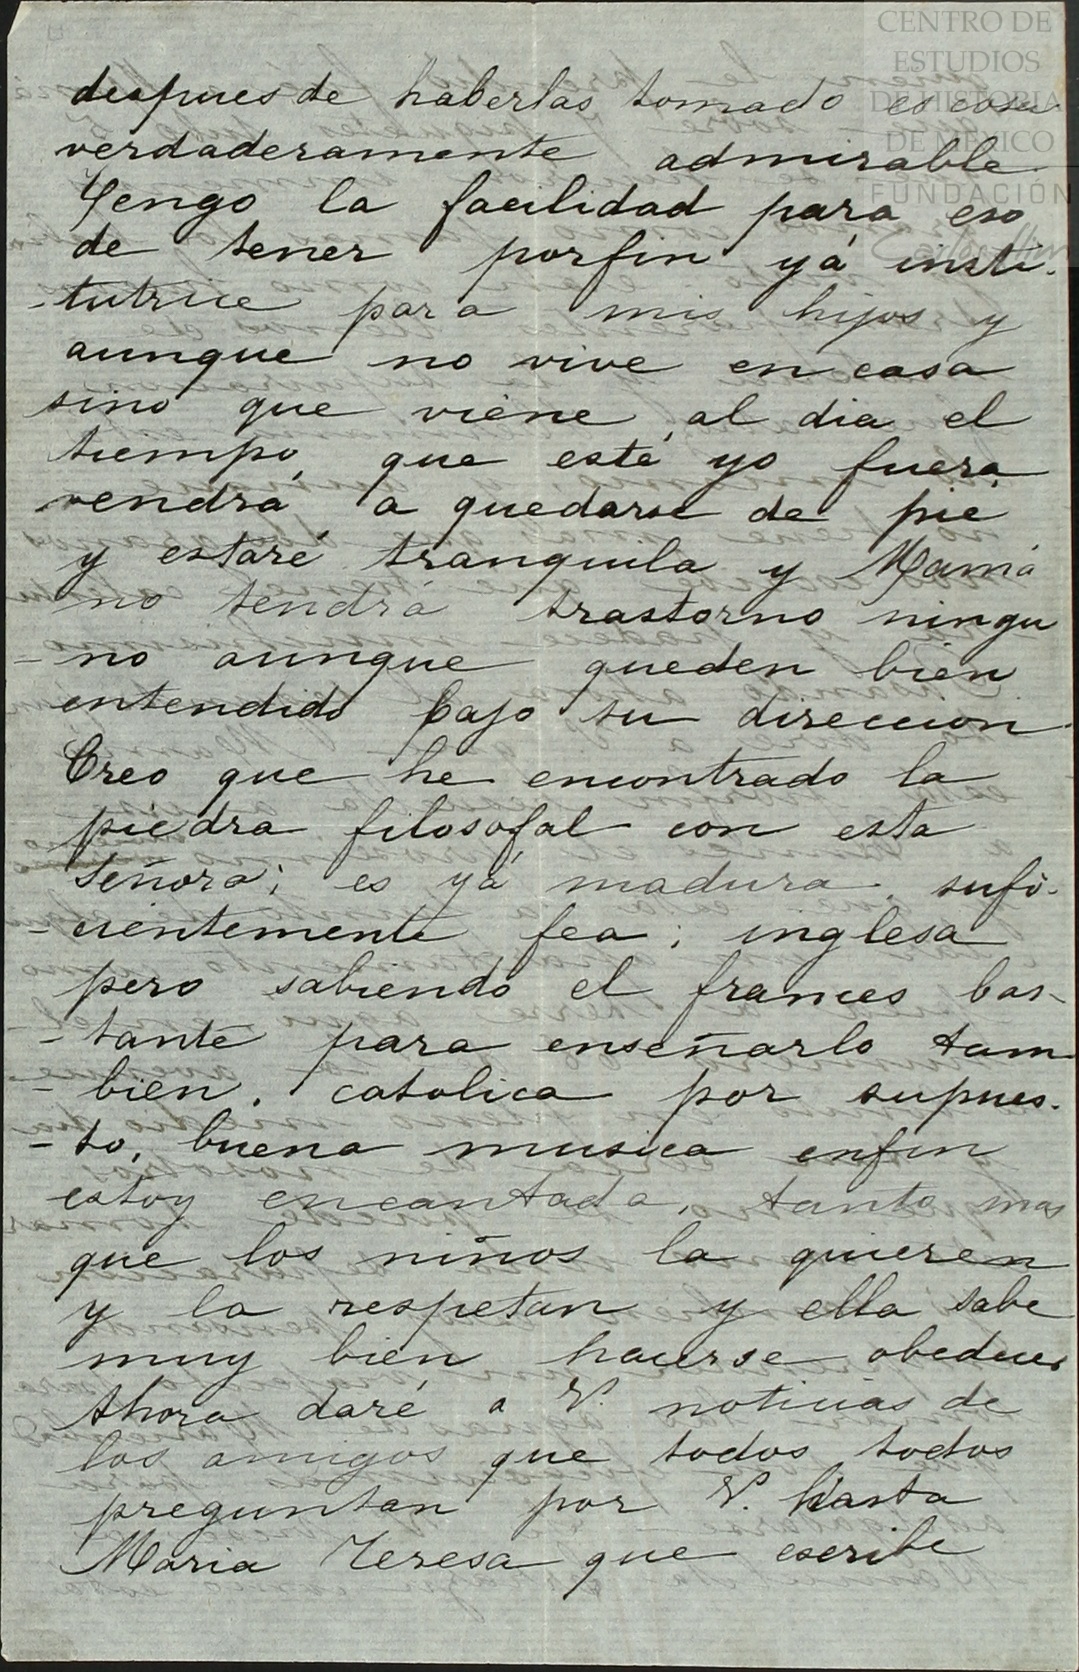 CENTRO DE
ESTUDIOS
DE HISTORIA
DE MEXICO
FUNDACIÓN
despues de haberlas tomado es cosa
verdaderamente admirable.
Tengo la facilidad para eso
de tener porfin yá insti-
-tutrice para mis hijos y
aunque no vive en casa
sino que viene al dia el
tiempo que esté yo fuera
vendrá a quedarse de pie
y estaré tranquila y Mamá
no tendrá trastorno ningu
-no aunque queden bien
entendido bajo su direccion.
Creo que he encontrado la
piedra filosofal con esta
Señora; es yá madura, sufi-
-cientemente fea; inglesa
pero sabiendo el frances bas-
-tante para enseñarlo tam
-bien, catolica por supues-
-to, buena musica enfin
estoy encantada, tanto mas
que los niños la quieren
y la respetan y ella sabe
muy bien hacerse obedecer
Ahora daré a V. noticias de
los amigos que todos todos
preguntan por V. hasta
Maria Teresa que escribe